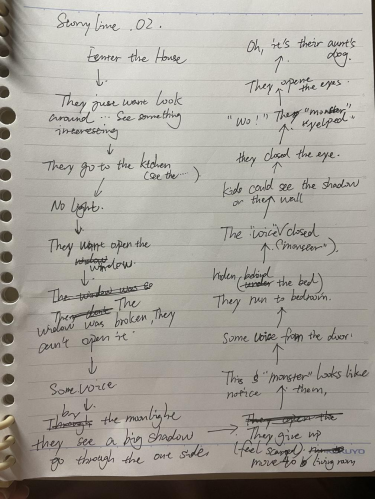 Story line .02.
enter the House
They just want Look
around ... See something
interesting
They go to the kitchen
(see the ... )
No light.
They want open the
widow
window.
The window was so
They don't The
widow was broken, They
can't open it.
Some voice
Through by the moonlight
they see a big shadow
go through the one side
They open the
They give up
(feel scared)
move to (living room)
This "monster" looks like
notice them,
Some voice from the door.
They run to bedroom.
hiden (under the bed)
behind
The "voice" closed
("monster").
Kids could see the shadow
on the wall
they closed the eye.
"Wo!" They "monster"
They open the eyes.
Oh, it's their aunt's
dog.